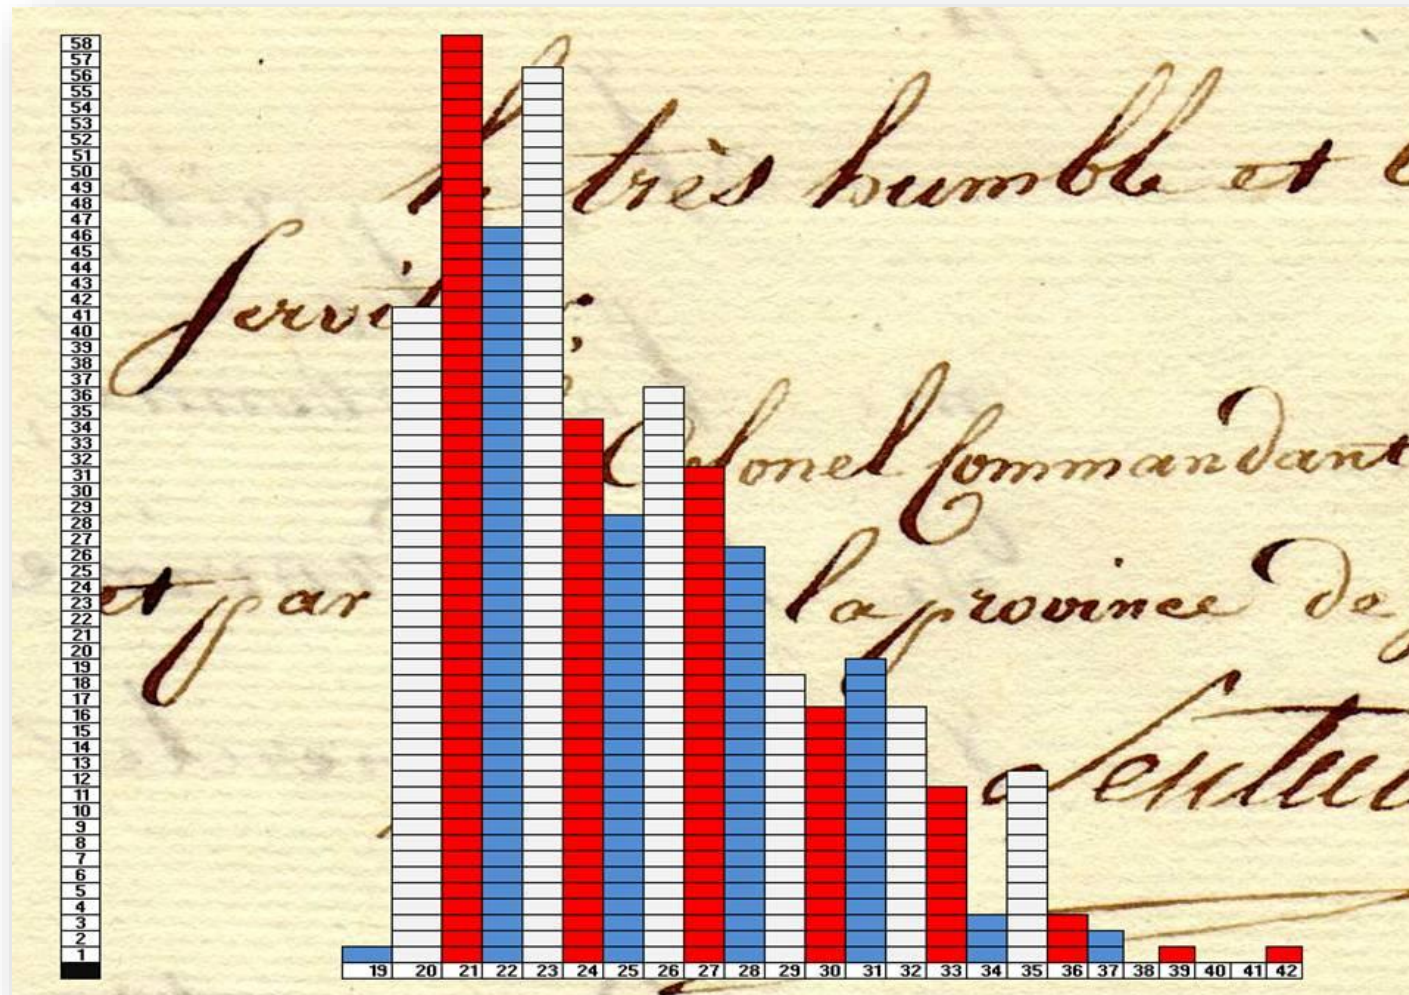 58
57
56
55
54
53
52
51
50
49
48
47
46
45
44
43
42
41
40
39
38
37
36
35
34
33
32
31
30
29
28
27
26
25
24
23
22
21
20
19
18
17
16
15
14
13
12
11
10
9
8
7
6
5
4
3
2
1
très humble et
Colonel Commandant
et par la province de
19 20 21 22 23 24 25 26 27 28 29 30 31 32 33 34 35 36 37 38 39 40 41 42